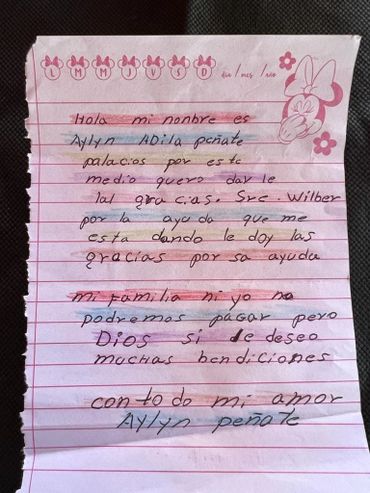 L M M J V S D día / mes / año
Hola mi nonbre es
Aylyn ADila peñate
palacios por este
medio quero dar le
lal gracias. Sre. Wilber
por la ayuda que me
esta dando le doy las
gracias por sa ayuda
mi Familia ni yo no
podremos pagar pero
Dios si le deseo
muchas bendiciones
con todo mi amor
Aylyn peñate